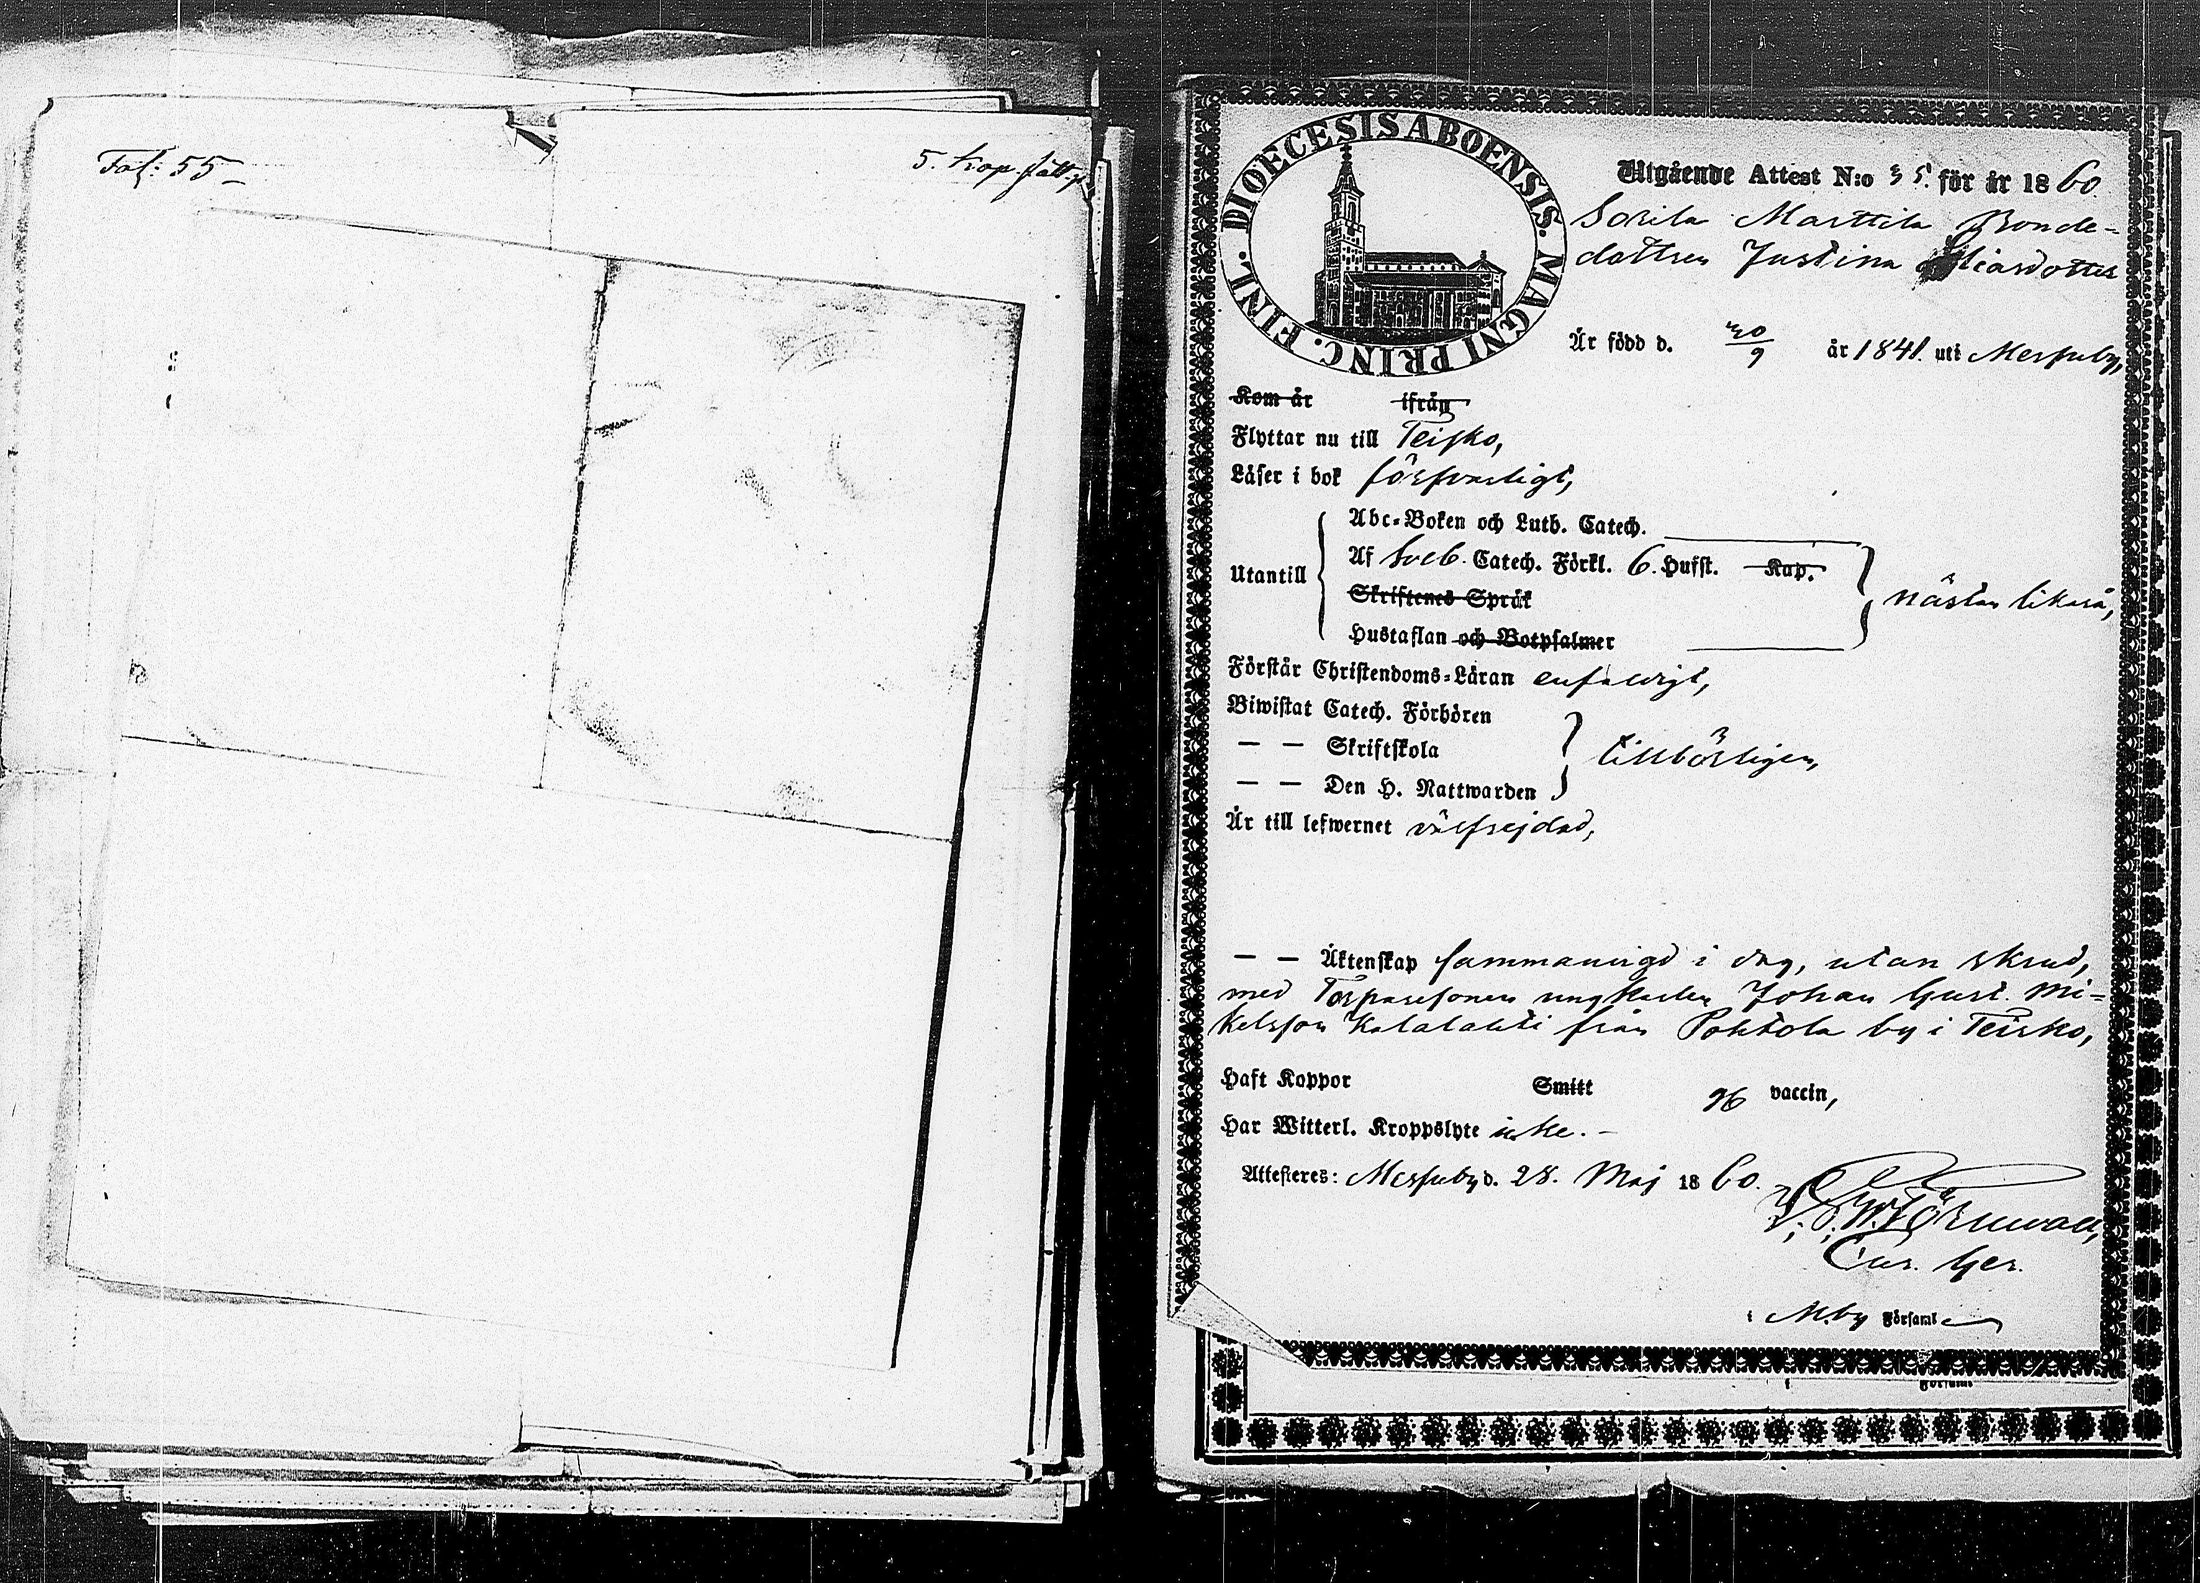 Fol: 55
5. Kop.
DIOECESIS ABOENSIS. MAGNI PRINC. FINL.
Utgående Attest N:o 35. för år 1860.
Sorila Marttila Bonde-
dottren Justina Eliasdotter
Är född d. 30/9 år 1841. uti Messuby,
Kom år ifrån
Flyttar nu till Teisko,
Läser i bok försvarligt,
Abc-Boken och Luth. Catech.
Utantill
Af Sveb. Catech. Förkl. 6. Hufst. Kap.
Skriftenes Språk
nästan likaså,
Hustaflan och Botpsalmer
Förstår Christendoms-Läran enfaldigt,
Biwistat Catech. Förhören
— — Skriftskola
tillbörligen,
— — Den H. Nattwarden
Är till lefwernet välfrejdad,
— — Äktenskap sammanvigd i dag, utan skrud,
med Torparesonen ungkarlen Johan Gust. Mi-
kelsson Kalalahti från Pohtola by i Teisko,
Haft Koppor Smitt vaccin,
Har Witterl. Kroppslyte icke. –
Attesteres: Messuby d. 28. Maj 1860.
Törnwall,
i M.by Församl
Församl